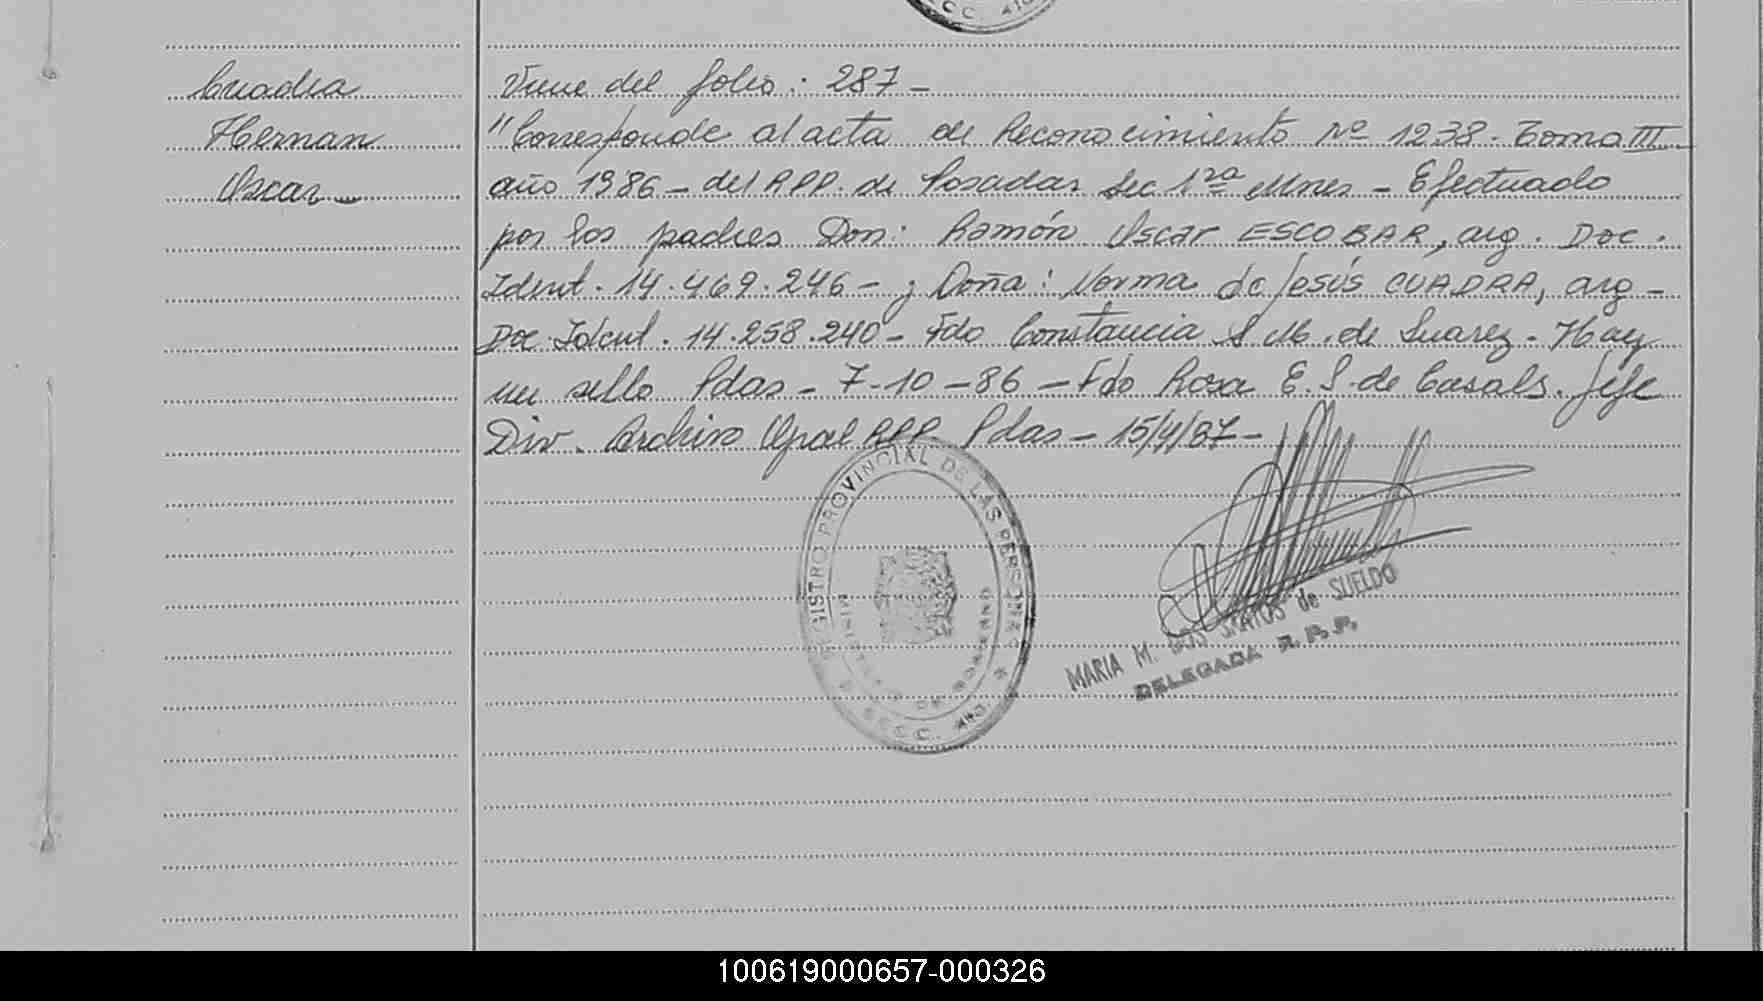 C.C. A10.
Cuadra
Hernan
Oscar
Viene del folio: 287 -
"Corresponde al acta de Reconocimiento Nº 1238. Tomo III
año 1986 - del RPP. de Posadas Sec 1ra Mnes - Efectuado
por los padres Don: Ramón Oscar ESCOBAR, arg. Doc.
Ident. 14.469.246 - y Doña: Norma de Jesús CUADRA, arg -
Doc Ident. 14.258.240 - Fdo Constancia S M. de Suarez - Hay
un sello Pdas - 7-10-86 - Fdo Rosa E. S. de Casals. Jefe
Div. Archivo Gral RPP Pdas - 15/4/87 -
REGISTRO PROVINCIAL DE LAS PERSONAS
MINISTERIO DE GOBIERNO
SECC. A10.
MARIA M. DOS SANTOS de SUELDO
DELEGADA R. P. P.
100619000657-000326